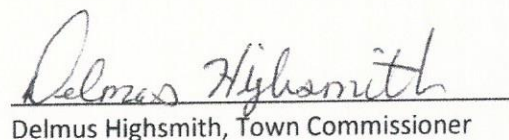 Delmas Highsmith
Delmus Highsmith, Town Commissioner